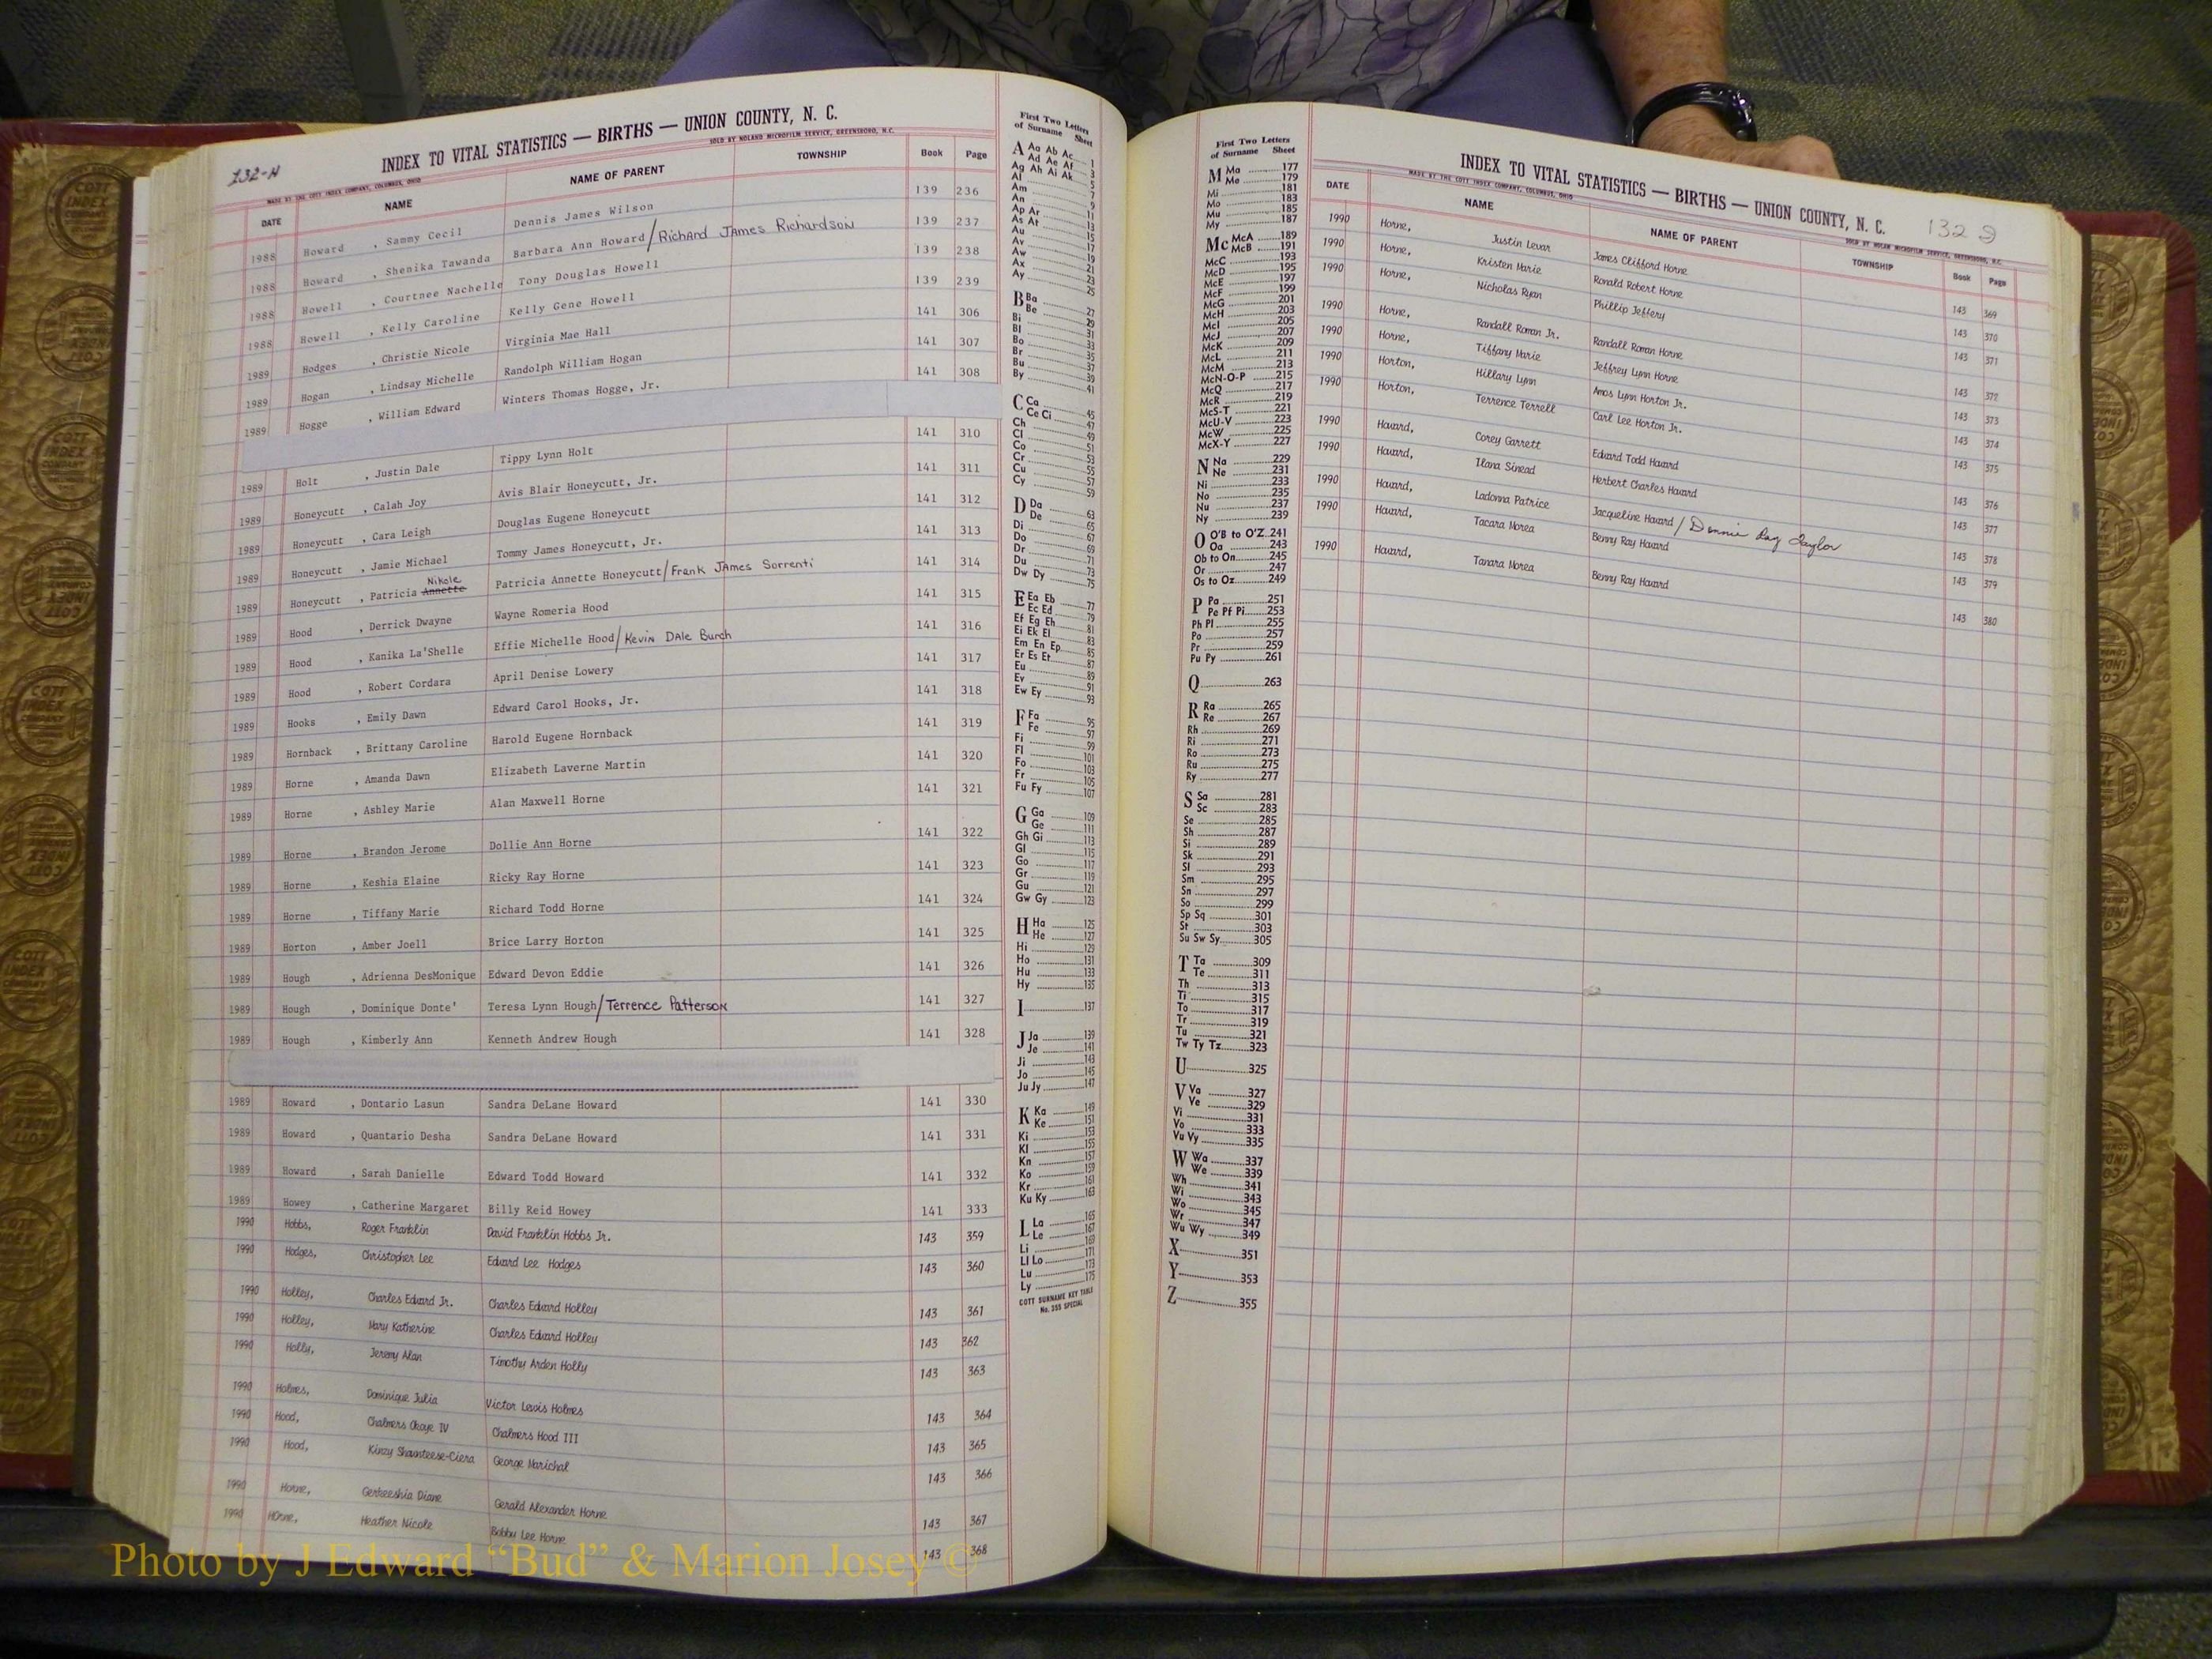 132-H
INDEX TO VITAL STATISTICS — BIRTHS — UNION COUNTY, N. C.
MADE BY THE COTT INDEX COMPANY, COLUMBUS, OHIO SOLD BY NOLAND MICROFILM SERVICE, GREENSBORO, N.C.
DATE NAME NAME OF PARENT TOWNSHIP Book Page
1988 Howard , Sammy Cecil Dennis James Wilson 139 236
1988 Howard , Shenika Tawanda Barbara Ann Howard/Richard James Richardson 139 237
1988 Howell , Courtnee Nachelle Tony Douglas Howell 139 238
1988 Howell , Kelly Caroline Kelly Gene Howell 139 239
1989 Hodges , Christie Nicole Virginia Mae Hall 141 306
1989 Hogan , Lindsay Michelle Randolph William Hogan 141 307
1989 Hogge , William Edward Winters Thomas Hogge, Jr. 141 308
1989 Holt , Justin Dale Tippy Lynn Holt 141 310
1989 Honeycutt , Calah Joy Avis Blair Honeycutt, Jr. 141 311
1989 Honeycutt , Cara Leigh Douglas Eugene Honeycutt 141 312
1989 Honeycutt , Jamie Michael Tommy James Honeycutt, Jr. 141 313
Nikole
1989 Honeycutt , Patricia Annette Patricia Annette Honeycutt/Frank James Sorrenti 141 314
1989 Hood , Derrick Dwayne Wayne Romeria Hood 141 315
1989 Hood , Kanika La'Shelle Effie Michelle Hood/Kevin Dale Burch 141 316
1989 Hood , Robert Cordara April Denise Lowery 141 317
1989 Hooks , Emily Dawn Edward Carol Hooks, Jr. 141 318
1989 Hornback , Brittany Caroline Harold Eugene Hornback 141 319
1989 Horne , Amanda Dawn Elizabeth Laverne Martin 141 320
1989 Horne , Ashley Marie Alan Maxwell Horne 141 321
1989 Horne , Brandon Jerome Dollie Ann Horne 141 322
1989 Horne , Keshia Elaine Ricky Ray Horne 141 323
1989 Horne , Tiffany Marie Richard Todd Horne 141 324
1989 Horton , Amber Joell Brice Larry Horton 141 325
1989 Hough , Adrienna DesMonique Edward Devon Eddie 141 326
1989 Hough , Dominique Donte' Teresa Lynn Hough/Terrence Patterson 141 327
1989 Hough , Kimberly Ann Kenneth Andrew Hough 141 328
1989 Howard , Dontario Lasun Sandra DeLane Howard 141 330
1989 Howard , Quantario Desha Sandra DeLane Howard 141 331
1989 Howard , Sarah Danielle Edward Todd Howard 141 332
1989 Howey , Catherine Margaret Billy Reid Howey 141 333
1990 Hobbs, Roger Franklin David Franklin Hobbs Jr. 143 359
1990 Hodges, Christopher Lee Edward Lee Hodges 143 360
1990 Holley, Charles Edward Jr. Charles Edward Holley 143 361
1990 Holley, Mary Katherine Charles Edward Holley 143 362
1990 Holly, Jeremy Alan Timothy Arden Holly 143 363
1990 Holmes, Dominique Julia Victor Lewis Holmes 143 364
1990 Hood, Chalmers Okoye IV Chalmers Hood III 143 365
1990 Hood, Kinzy Shaunteese-Ciera George Marichal 143 366
1990 Horne, Diane Gerald Alexander Horne 143 367
1990 HOrne, Heather Nicole Bobby Lee Horne 143 368
First Two Letters
of Surname Sheet
A Aa Ab Ac 1
Ad Ae Af 3
Ag Ah Ai Ak 5
Al 7
Am 9
An 11
Ap Ar 13
As At 15
Au 17
Av 19
Aw 21
Ax 23
Ay 25
B Ba 27
Be 29
Bi 31
Bl 33
Bo 35
Br 37
Bu 39
By 41
C Ca 45
Ce Ci 47
Ch 49
Cl 51
Co 53
Cr 55
Cu 57
Cy 59
D Da 63
De 65
Di 67
Do 69
Dr 71
Du 73
Dw Dy 75
E Ea Eb 77
Ec Ed 79
Ef Eg Eh 81
Ei Ek El 83
Em En Ep 85
Er Es Et 87
Eu 89
Ev 91
Ew Ey 93
F Fa 95
Fe 97
Fi 99
Fl 101
Fo 103
Fr 105
Fu Fy 107
G Ga 109
Ge 111
Gh Gi 113
Gl 115
Go 117
Gr 119
Gu 121
Gw Gy 123
H Ha 125
He 127
Hi 129
Ho 131
Hu 133
Hy 135
I 137
J Ja 139
Je 141
Ji 143
Jo 145
Ju Jy 147
K Ka 149
Ke 151
Ki 153
Kl 155
Kn 157
Ko 159
Kr 161
Ku Ky 163
L La 165
Le 167
Li 169
Ll Lo 171
Lu 173
Ly 175
COTT SURNAME KEY TABLE
No. 355 SPECIAL
First Two Letters
of Surname Sheet
M Ma 177
Me 179
Mi 181
Mo 183
Mu 185
My 187
Mc McA 189
McB 191
McC 193
McD 195
McE 197
McF 199
McG 201
McH 203
McI 205
McJ 207
McK 209
McL 211
McM 213
McN-O-P 215
McQ 217
McR 219
McS-T 221
McU-V 223
McW 225
McX-Y 227
N Na 229
Ne 231
Ni 233
No 235
Nu 237
Ny 239
O O'B to O'Z 241
Oa 243
Ob to On 245
Or 247
Os to Oz 249
P Pa 251
Pe Pf Pi 253
Ph Pl 255
Po 257
Pr 259
Pu Py 261
Q 263
R Ra 265
Re 267
Rh 269
Ri 271
Ro 273
Ru 275
Ry 277
S Sa 281
Sc 283
Se 285
Sh 287
Si 289
Sk 291
Sl 293
Sm 295
Sn 297
So 299
Sp Sq 301
St 303
Su Sw Sy 305
T Ta 309
Te 311
Th 313
Ti 315
To 317
Tr 319
Tu 321
Tw Ty Tz 323
U 325
V Va 327
Ve 329
Vi 331
Vo 333
Vu Vy 335
W Wa 337
We 339
Wh 341
Wi 343
Wo 345
Wr 347
Wu Wy 349
X 351
Y 353
Z 355
INDEX TO VITAL STATISTICS — BIRTHS — UNION COUNTY, N. C. 132
MADE BY THE COTT INDEX COMPANY, COLUMBUS, OHIO SOLD BY NOLAN MICROFILM SERVICE, GREENSBORO, N.C.
DATE NAME NAME OF PARENT TOWNSHIP Book Page
1990 Horne, Justin Levar James Clifford Horne 143 369
1990 Horne, Kristen Marie Ronald Robert Horne 143 370
1990 Horne, Nicholas Ryan Phillip Jeffery 143 371
1990 Horne, Randall Roman Jr. Randall Roman Horne 143 372
1990 Horne, Tiffany Marie Jeffrey Lynn Horne 143 373
1990 Horton, Hillary Lynn Amos Lynn Horton Jr. 143 374
1990 Horton, Terrence Terrell Carl Lee Horton Jr. 143 375
1990 Howard, Corey Garrett Edward Todd Howard 143 376
1990 Howard, Ilana Sinead Herbert Charles Howard 143 377
1990 Howard, Ladonna Patrice Jacqueline Howard/Donnie Ray Taylor 143 378
1990 Howard, Tacara Norea Benny Ray Howard 143 379
1990 Howard, Tanara Norea Benny Ray Howard 143 380
Photo by J Edward “Bud” & Marion Josey ©